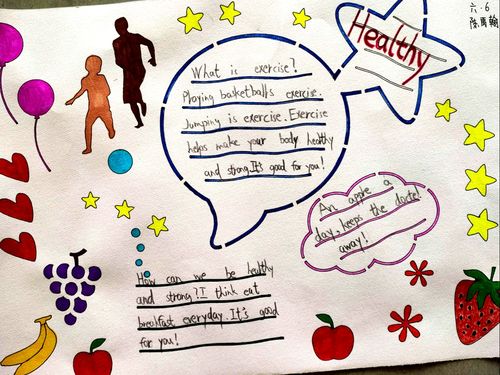 六.6
Healthy
What is exercise?
Playing basketballs exercise.
Jumping is exercise. Exercise
helps make your body healthy
and strong. It's good for you!
An apple a
day, keeps the
away!
How can we be healthy
and strong? I think eat
breakfast everyday. It's good
for you!